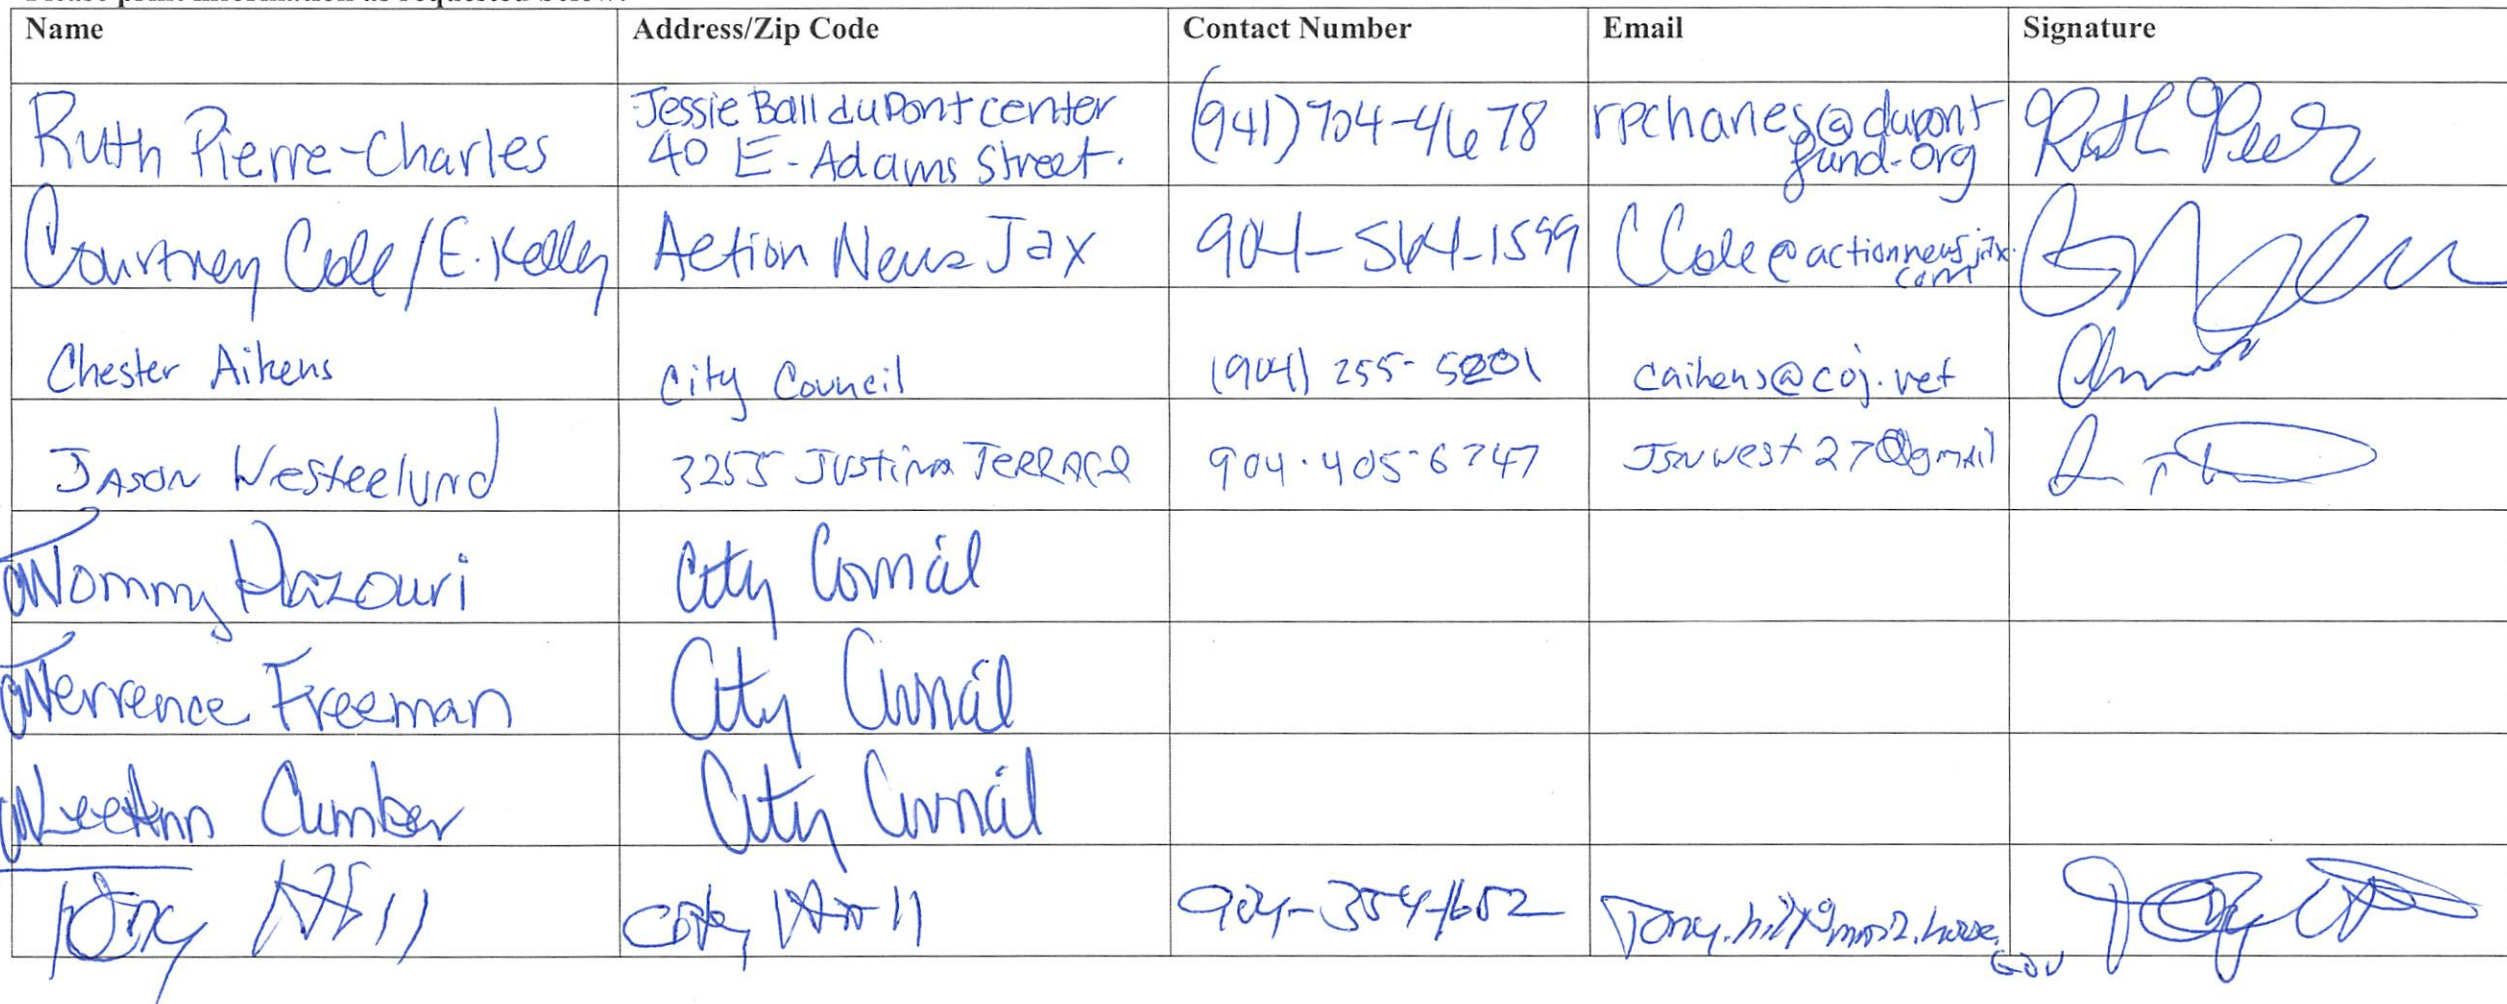 Name Address/Zip Code Contact Number Email Signature
Ruth Pierre-Charles Jessie Ball duPont center (941) 704-4678 rpcharles@dupont
40 E-Adams street. fund.org
Courtney Cole/E. Kelly Action News Jax 904-564-1599 CCole@actionnewsjax.
com
Chester Aikens City Council (904) 255-5201 caikens@coj.net
JASON Westeelund 3255 JUSTINA TERRACE 904.405-6747 JSNwest27@gmail
Tommy Hazouri City Council
Terrence Freeman City Council
LeeAnn Cumber City Council
Tony Hill City Hall 904-354-1652
GOV